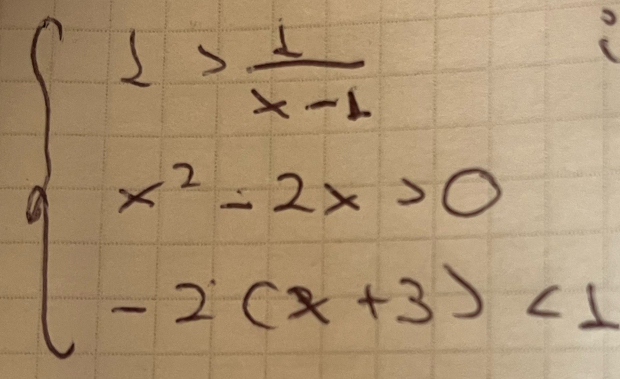 1 > 1/(x-1)
x² - 2x > 0
-2(x+3) < 1